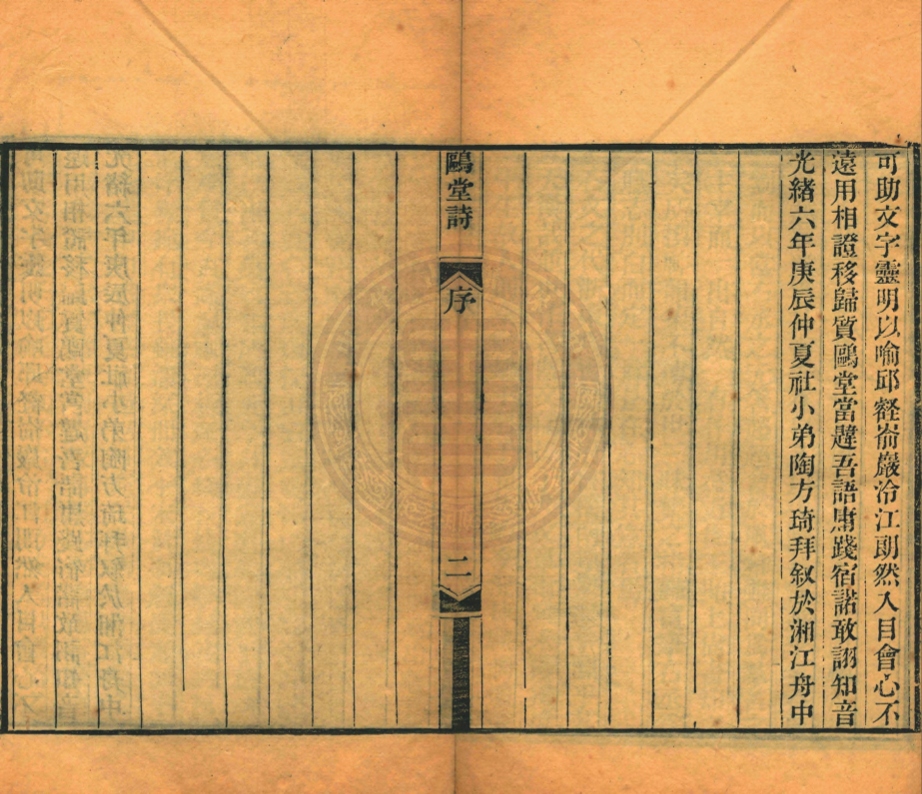 可助文字靈明以喻邱壑崙巖冷江朗然入目會心不
遠用相證移歸質鷗堂當韙吾語庸踐宿諾敢詡知音
光緒六年庚辰仲夏社小弟陶方琦拜叙於湘江舟中
鷗堂詩
序
二